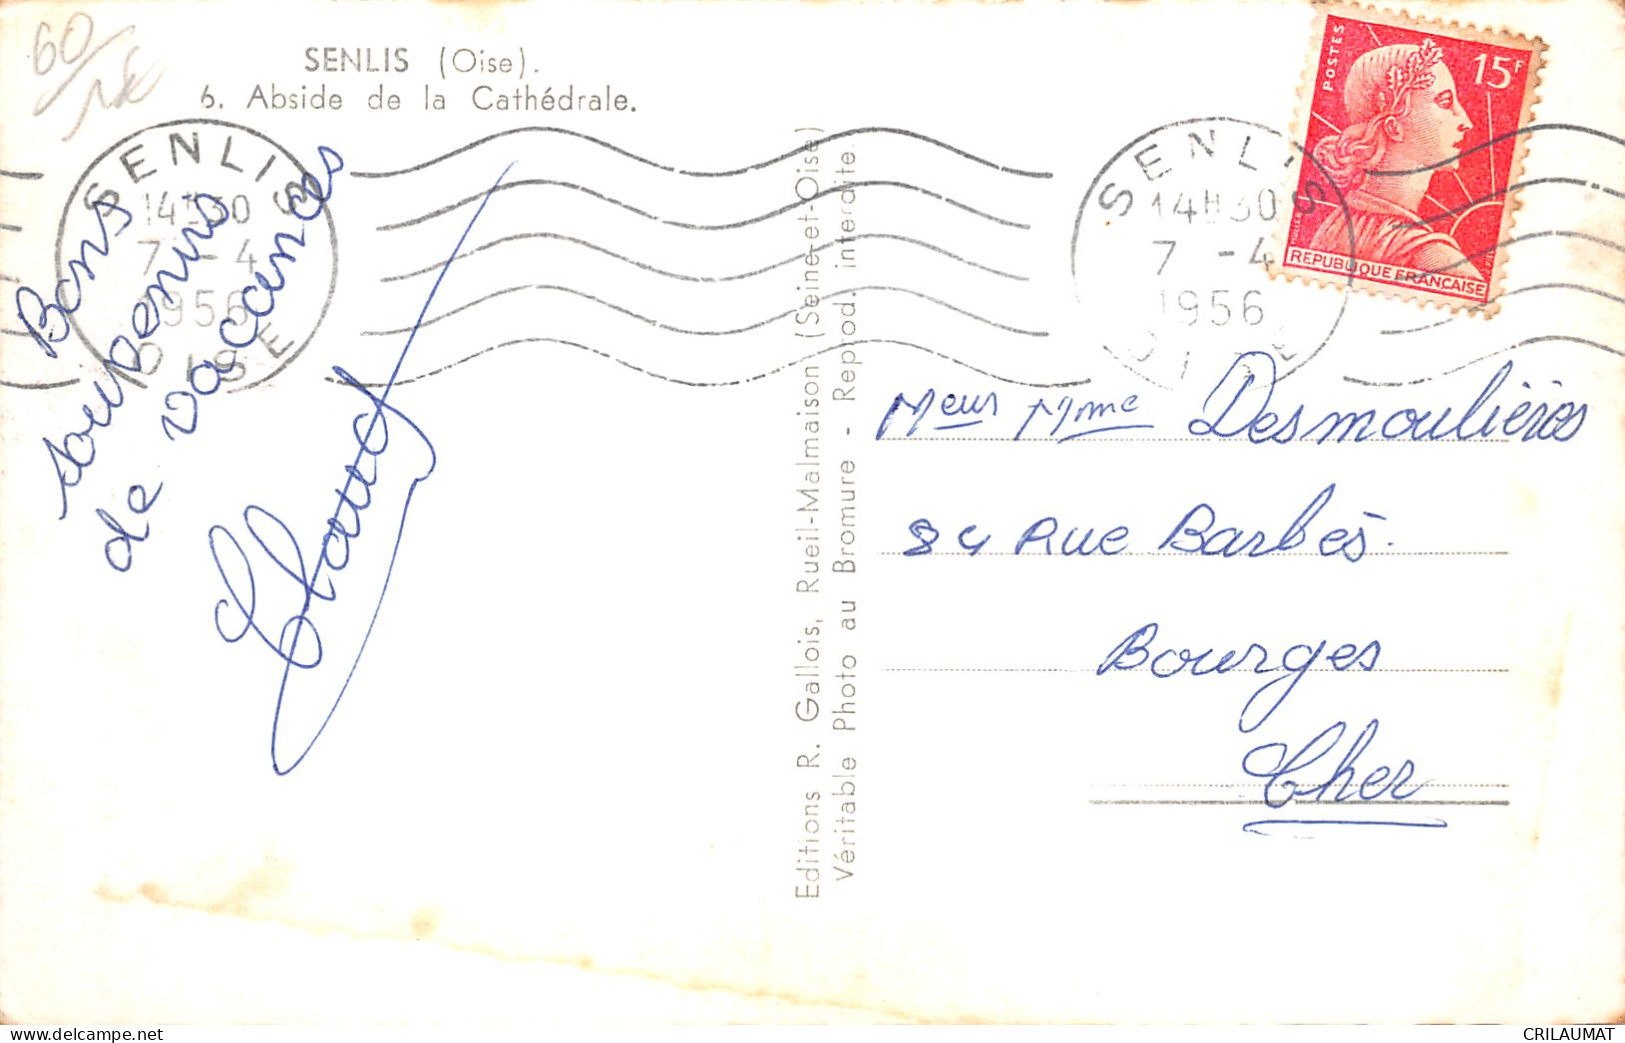 60/
SENLIS (Oise).
6. Abside de la Cathédrale.
SENLIS
14H30
7 -4
1956
OISE
Bons
souvenirs
de vacances
Claud
Editions R. Gallois, Rueil-Malmaison (Seine-et-Oise)
Véritable Photo au Bromure - Reprod. interdite.
SENLIS
14H30
7 -4
1956
OISE
POSTES
15F
MULLER
REPUBLIQUE FRANÇAISE
Meur Mme Desmoulières
84 Rue Barbès.
Bourges
Cher
https://www.delcampe.net
CRILAUMAT